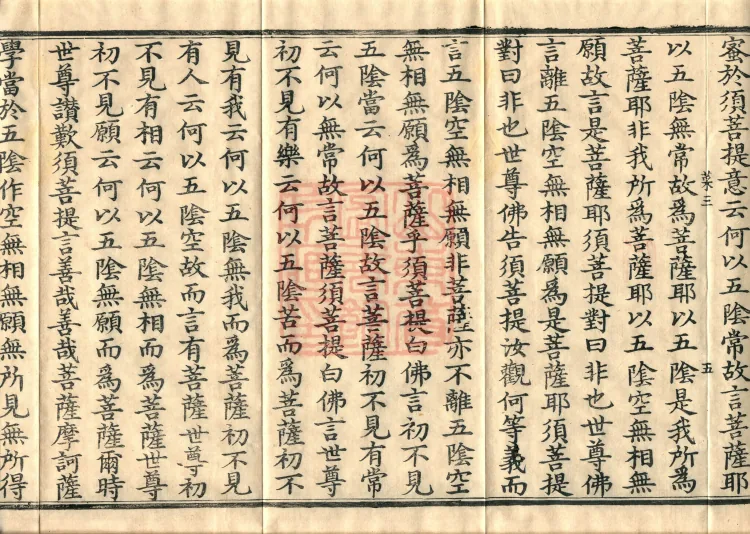 蜜於須菩提意云何以五陰常故言菩薩耶
以五陰無常故為菩薩耶以五陰是我所為
菩薩耶非我所為菩薩耶以五陰空無相無
願故言是菩薩耶須菩提對曰非也世尊佛
言離五陰空無相無願為是菩薩耶須菩提
對曰非也世尊佛告須菩提汝觀何等義而
言五陰空無相無願非菩薩亦不離五陰空
無相無願為菩薩乎須菩提白佛言初不見
五陰當云何以五陰故言菩薩初不見有常
云何以無常故言菩薩須菩提白佛言世尊
初不見有樂云何以五陰苦而為菩薩初不
見有我云何以五陰無我而為菩薩初不見
有人云何以五陰空故而言有菩薩世尊初
不見有相云何以五陰無相而為菩薩世尊
初不見願云何以五陰無願而為菩薩爾時
世尊讚歎須菩提言善哉善哉菩薩摩訶薩
學當於五陰作空無相無願無所見無所得
菜三
五